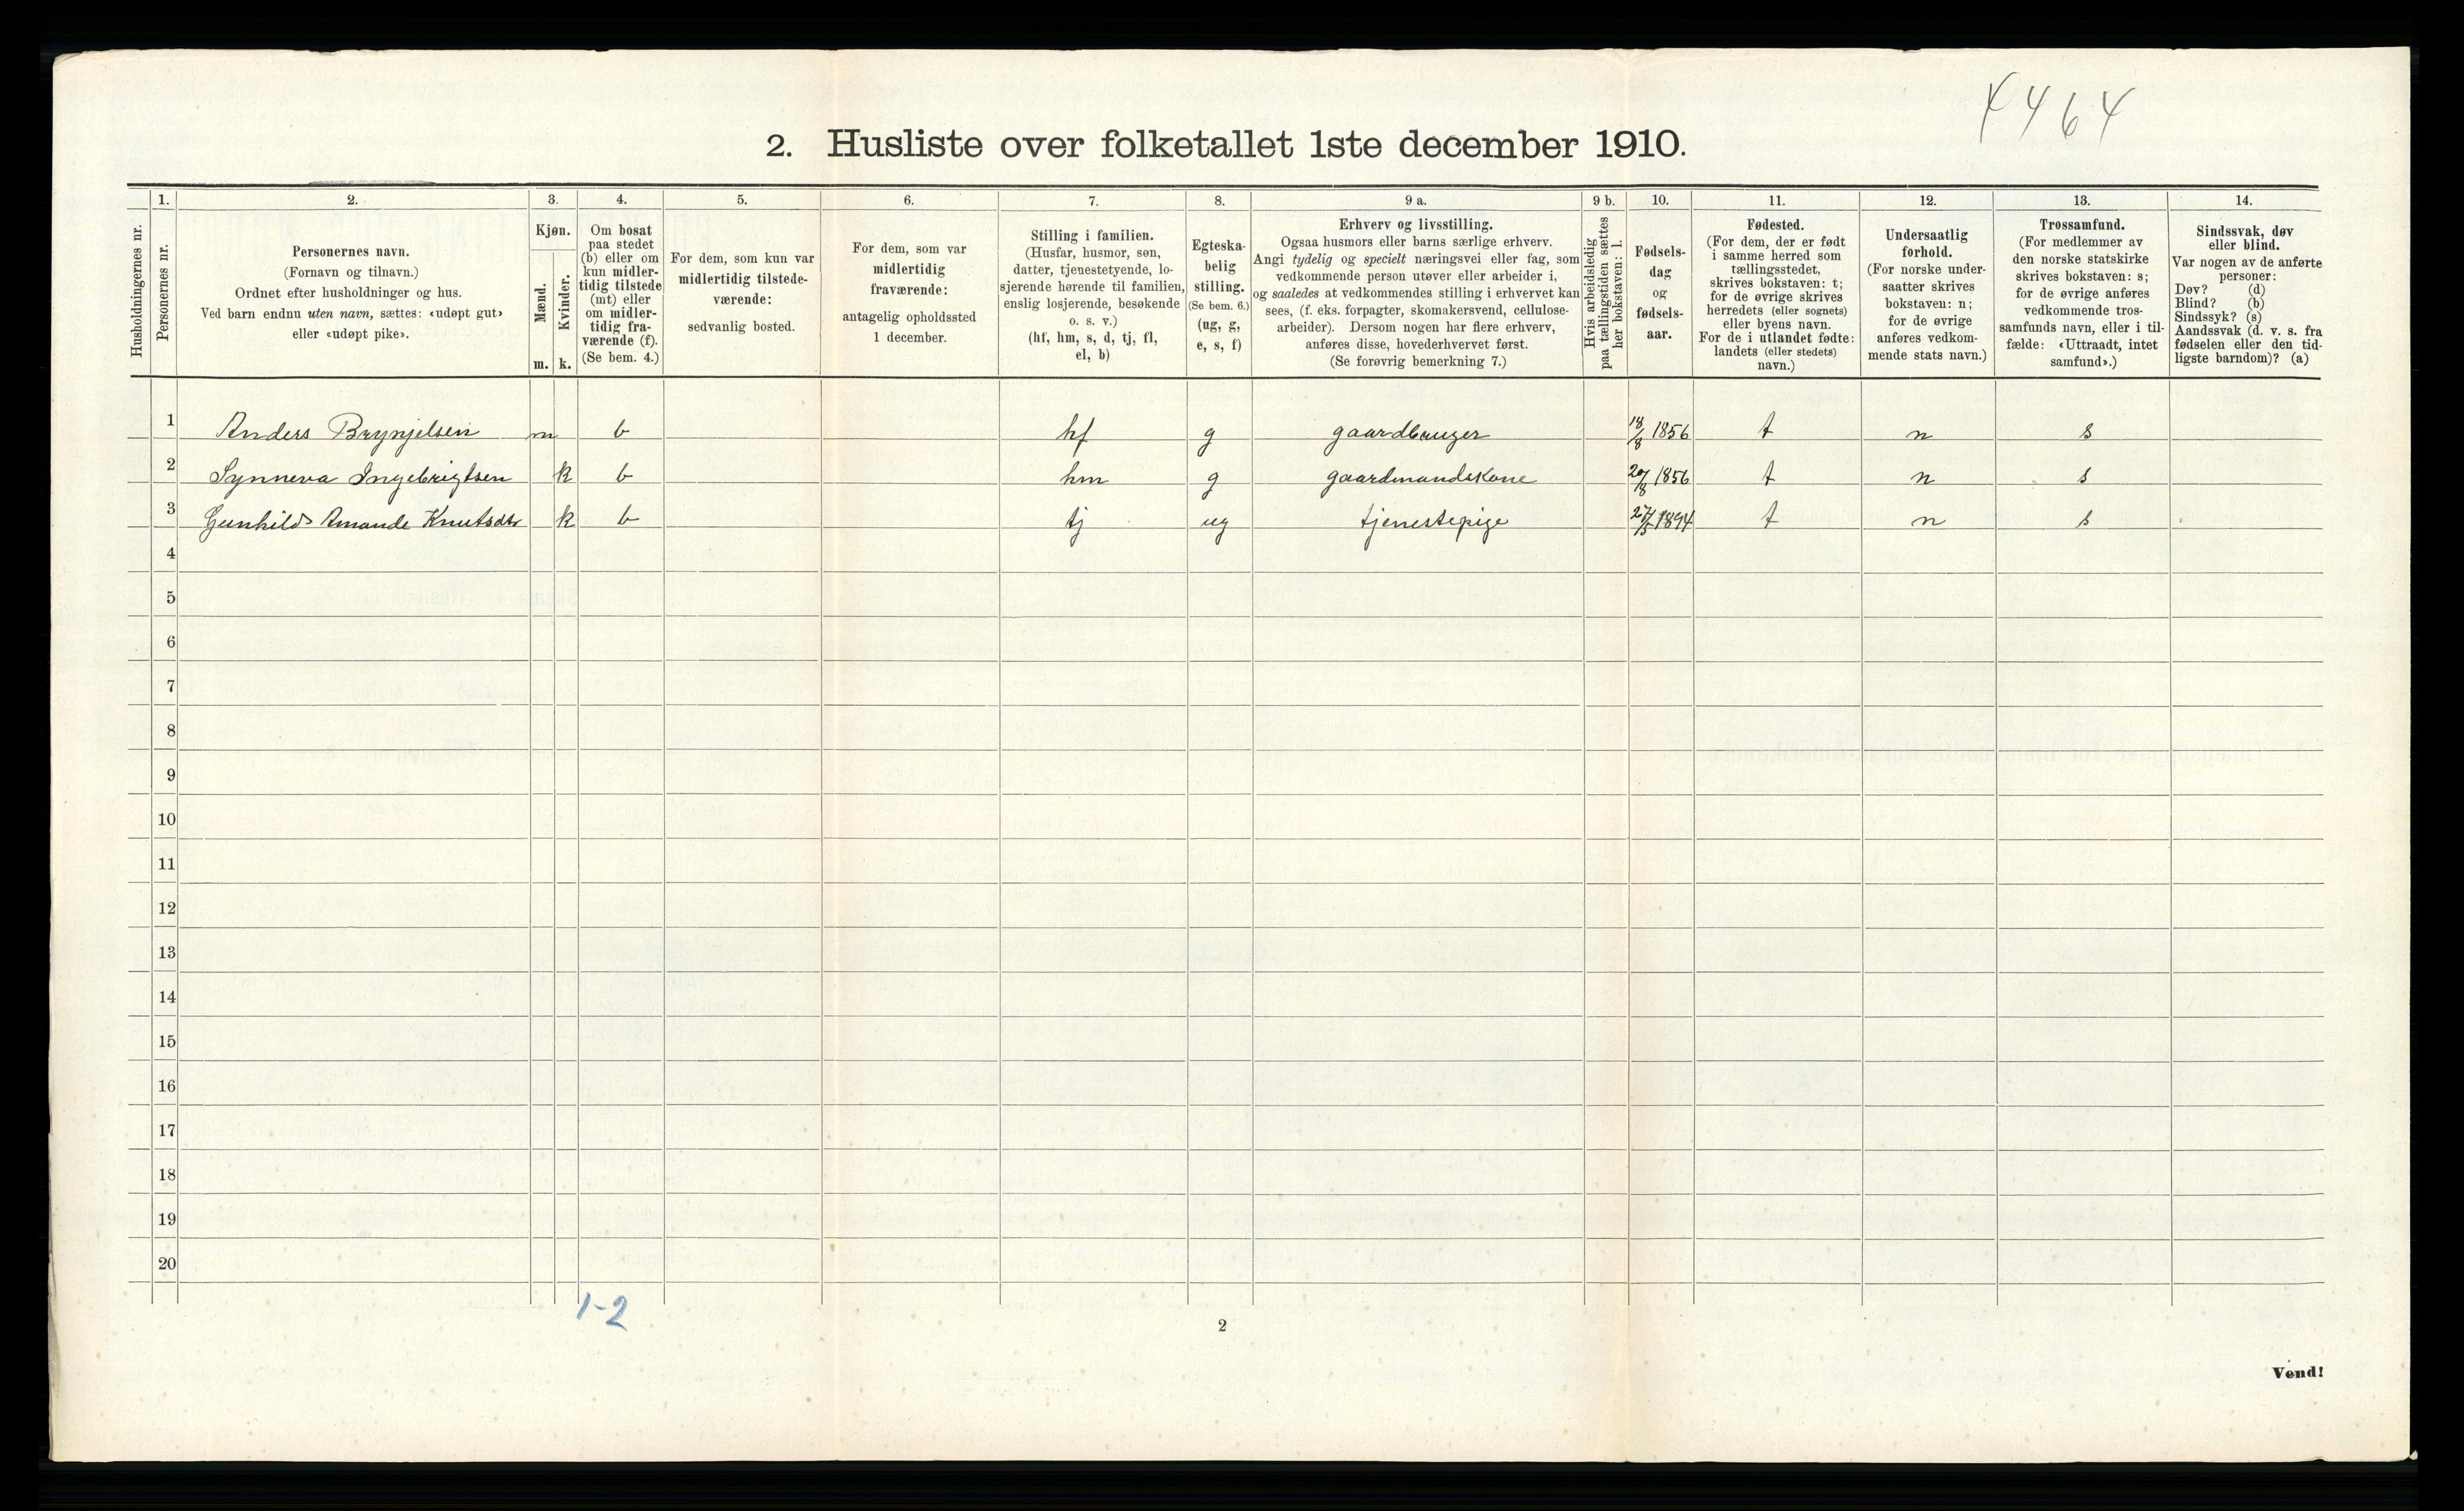 4464
2. Husliste over folketallet 1ste december 1910.
1. 2. 3. 4. 5. 6. 7. 8. 9 a. 9 b. 10. 11. 12. 13. 14.
Husholdningernes nr.
Personernes nr.
Personernes navn.
(Fornavn og tilnavn.)
Ordnet efter husholdninger og hus.
Ved barn endnu uten navn, sættes: «udøpt gut»
eller «udøpt pike».
Kjøn.
Mænd.
Kvinder.
m. k.
Om bosat
paa stedet
(b) eller om
kun midler-
tidig tilstede
(mt) eller
om midler-
tidig fra-
værende (f).
(Se bem. 4.)
For dem, som kun var
midlertidig tilstede-
værende:
sedvanlig bosted.
For dem, som var
midlertidig
fraværende:
antagelig opholdssted
1 december.
Stilling i familien.
(Husfar, husmor, søn,
datter, tjenestetyende, lo-
sjerende hørende til familien,
enslig losjerende, besøkende
o. s. v.)
(hf, hm, s, d, tj, fl,
el, b)
Egteska-
belig
stilling.
(Se bem. 6.)
(ug, g,
e, s, f)
Erhverv og livsstilling.
Ogsaa husmors eller barns særlige erhverv.
Angi tydelig og specielt næringsvei eller fag, som
vedkommende person utøver eller arbeider i,
og saaledes at vedkommendes stilling i erhvervet kan
sees, (f. eks. forpagter, skomakersvend, cellulose-
arbeider). Dersom nogen har flere erhverv,
anføres disse, hovederhvervet først.
(Se forøvrig bemerkning 7.)
Hvis arbeidsledig
paa tællingstiden sættes
her bokstaven: l.
Fødsels-
dag
og
fødsels-
aar.
Fødested.
(For dem, der er født
i samme herred som
tællingsstedet,
skrives bokstaven: t;
for de øvrige skrives
herredets (eller sognets)
eller byens navn.
For de i utlandet fødte:
landets (eller stedets)
navn.)
Undersaatlig
forhold.
(For norske under-
saatter skrives
bokstaven: n;
for de øvrige
anføres vedkom-
mende stats navn.)
Trossamfund.
(For medlemmer av
den norske statskirke
skrives bokstaven: s;
for de øvrige anføres
vedkommende tros-
samfunds navn, eller i til-
fælde: «Uttraadt, intet
samfund».)
Sindssvak, døv
eller blind.
Var nogen av de anførte
personer:
Døv? (d)
Blind? (b)
Sindssyk? (s)
Aandssvak (d. v. s. fra
fødselen eller den tid-
ligste barndom)? (a)
1 Anders Brynjelsen m b hf g gaardbruger 18/8 1856 t n s
2 Synneva Ingebrigtsen k b hm g gaardmandskone 20/8 1856 t n s
3 Gunhild Amande Knutsdtr k b tj ug tjenestepige 27/5 1894 t n s
4
5
6
7
8
9
10
11
12
13
14
15
16
17
18
19
20
1-2
2
Vend!